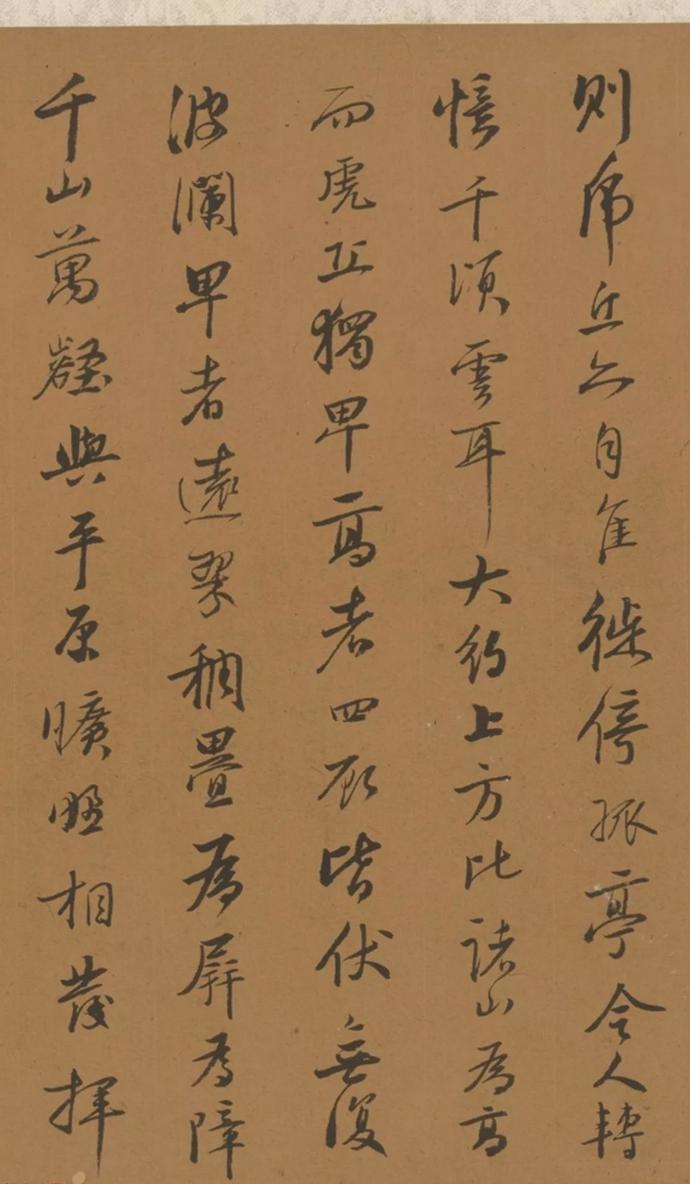 則虎丘以月佳徙倚孤亭令人轉
憶千頃雲耳大約上方比諸山為高
而虎丘獨卑高者四顧皆伏無復
波瀾卑者遠翠稠疊為屏為障
千山萬壑與平原曠野相發揮